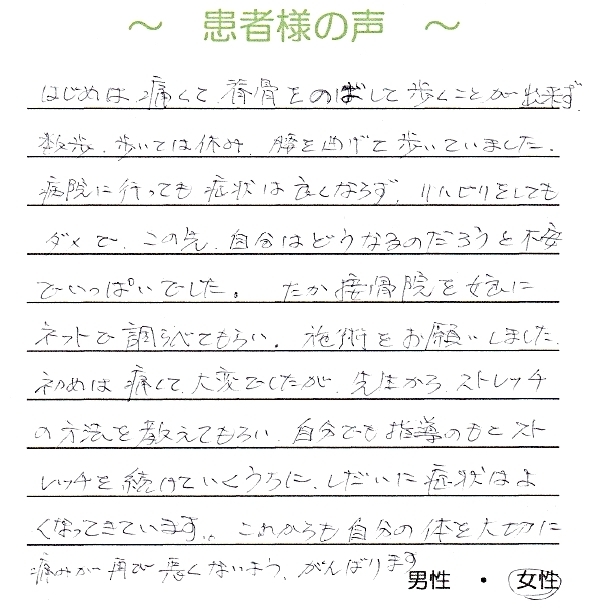 ～ 患者様の声 ～
はじめは痛くて脊骨をのばして歩くことが出来ず、
数歩、歩いては休み、膝を曲げて歩いていました。
病院に行っても症状は良くならず、リハビリをしても
ダメで、この先、自分はどうなるのだろうと不安
でいっぱいでした。 たか接骨院を娘に
ネットで調らべてもらい、施術をお願いしました。
初めは痛くて、大変でしたが、先生から、ストレッチ
の方法を教えてもらい、自分でも指導のもとスト
レッチを続けていくうちに、しだいに症状はよ
くなってきています。。これからも自分の体を大切に
痛みが再び悪くないよう、がんばります
男性 ・ 女性